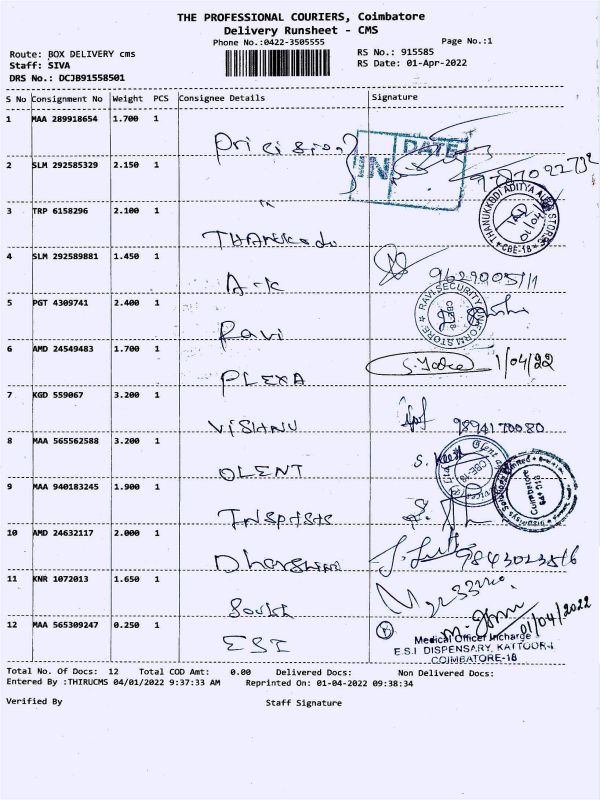 THE PROFESSIONAL COURIERS, Coimbatore
Delivery Runsheet - CMS
Phone No.:0422-3505555 Page No.:1
Route: BOX DELIVERY cms RS No.: 915585
Staff: SIVA RS Date: 01-Apr-2022
DRS No.: DCJB91558501
S No Consignment No Weight PCS Consignee Details Signature
1 MAA 289918654 1.700 1
IN DATE
2 SLM 292585329 2.150 1
3 TRP 6158296 2.100 1
THANUKKODI ADITYA STORES CBE-18
4 SLM 292589881 1.450 1
A-k
5 PGT 4309741 2.400 1
Ravi RAVI SECURITY UNIFORM STORE CBE-18
6 AMD 24549483 1.700 1
PLEXA 1/04/22
7 KGD 559067 3.200 1
VISHNU 9894170080
8 MAA 565562588 3.200 1
OLENT CBE-18
9 MAA 940183245 1.900 1
Coimbatore
10 AMD 24632117 2.000 1
11 KNR 1072013 1.650 1
12 MAA 565309247 0.250 1
ESI 01/04/2022
Medical Officer Incharge
E.S.I DISPENSARY, KATTOOR-I
COIMBATORE-18
Total No. Of Docs: 12 Total COD Amt: 0.00 Delivered Docs: Non Delivered Docs:
Entered By :THIRUCMS 04/01/2022 9:37:33 AM Reprinted On: 01-04-2022 09:38:34
Verified By Staff Signature